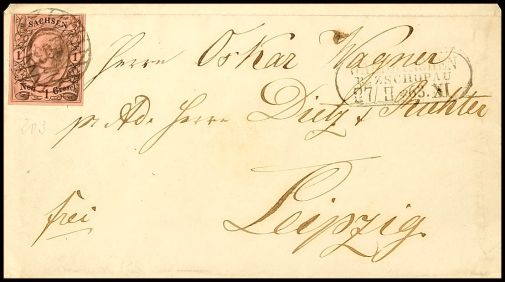 SACHSEN
1 1
Neu 1 Grosch
Herrn Oskar Wagner
B.ZSCHOPAU
27 II 63. XI
pr Ad. Herrn Dietz & Richter
frei
Leipzig.